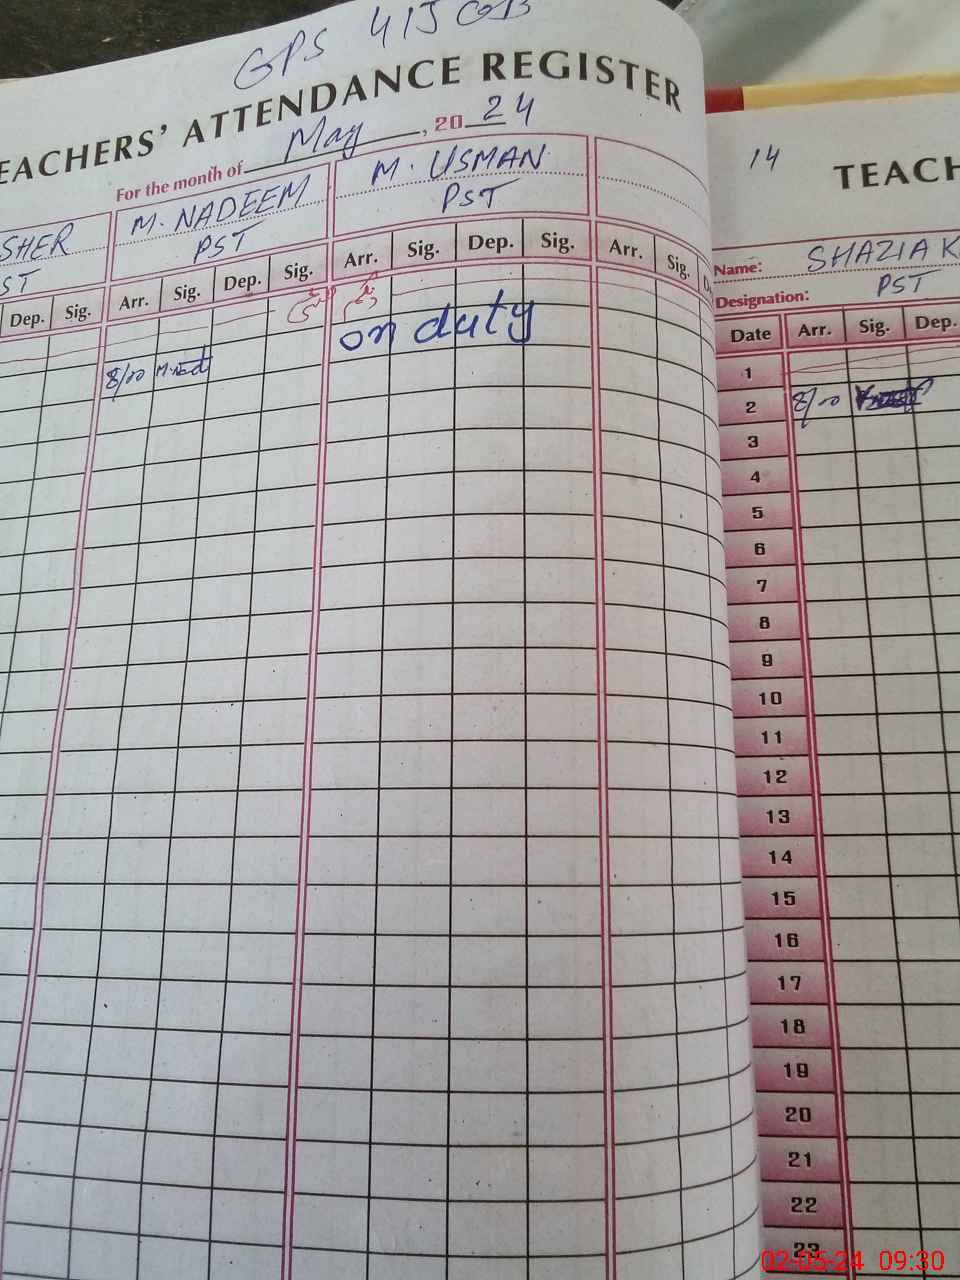 GPS 415 GB
EACHERS' ATTENDANCE REGISTER
For the month of May, 2024
SHER M. NADEEM M. USMAN
ST PST PST
Dep. Sig. Arr. Sig. Dep. Sig. Arr. Sig. Dep. Sig. Arr. Sig. D
on duty
8/00 M.Ned
14
TEACH
Name: SHAZIA K
Designation: PST
Date Arr. Sig. Dep.
1
2 8/00
3
4
5
6
7
8
9
10
11
12
13
14
15
16
17
18
19
20
21
22
23
02-05-24 09:30